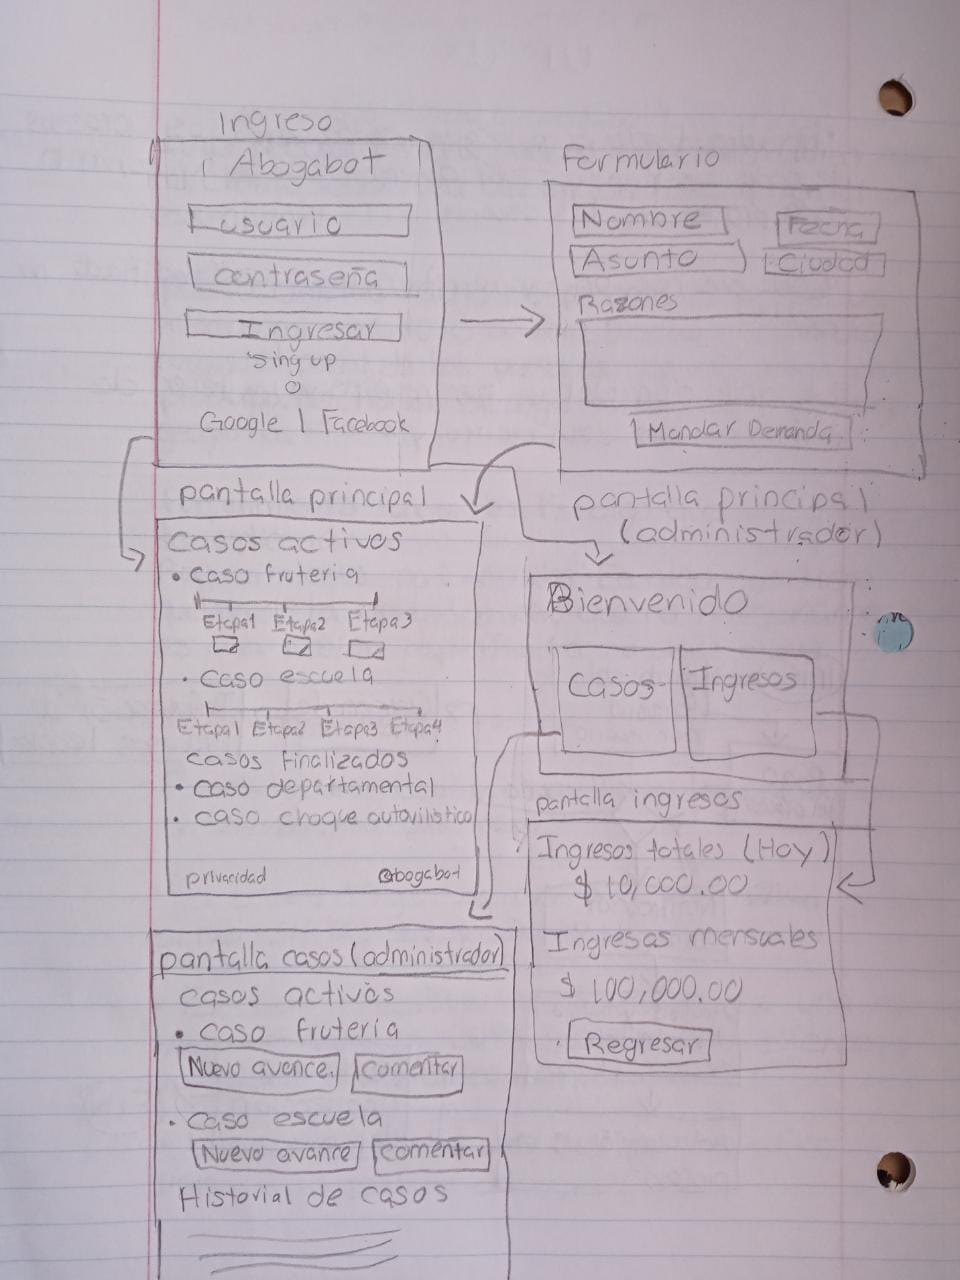 Ingreso
Abogabot
usuario
contraseña
Ingresar
sing up
o
Google | Facebook
Formulario
Nombre
Fecha
Asunto
Ciudad
Razones
Mandar Demanda
pantalla principal
casos activos
• caso fruteria
Etapa1 Etapa2 Etapa3
• caso escuela
Etapa1 Etapa2 Etapa3 Etapa4
casos finalizados
• caso departamental
• caso choque autovilistico
privacidad @bogabot
pantalla principal
(administrador)
Bienvenido
casos Ingresos
pantalla ingresos
Ingresos totales (Hoy)
$ 10,000.00
Ingresas mensuales
$ 100,000.00
Regresar
pantalla casos (administrador)
casos activos
• caso fruteria
Nuevo avance. comentar
• caso escuela
Nuevo avance comentar
Historial de casos